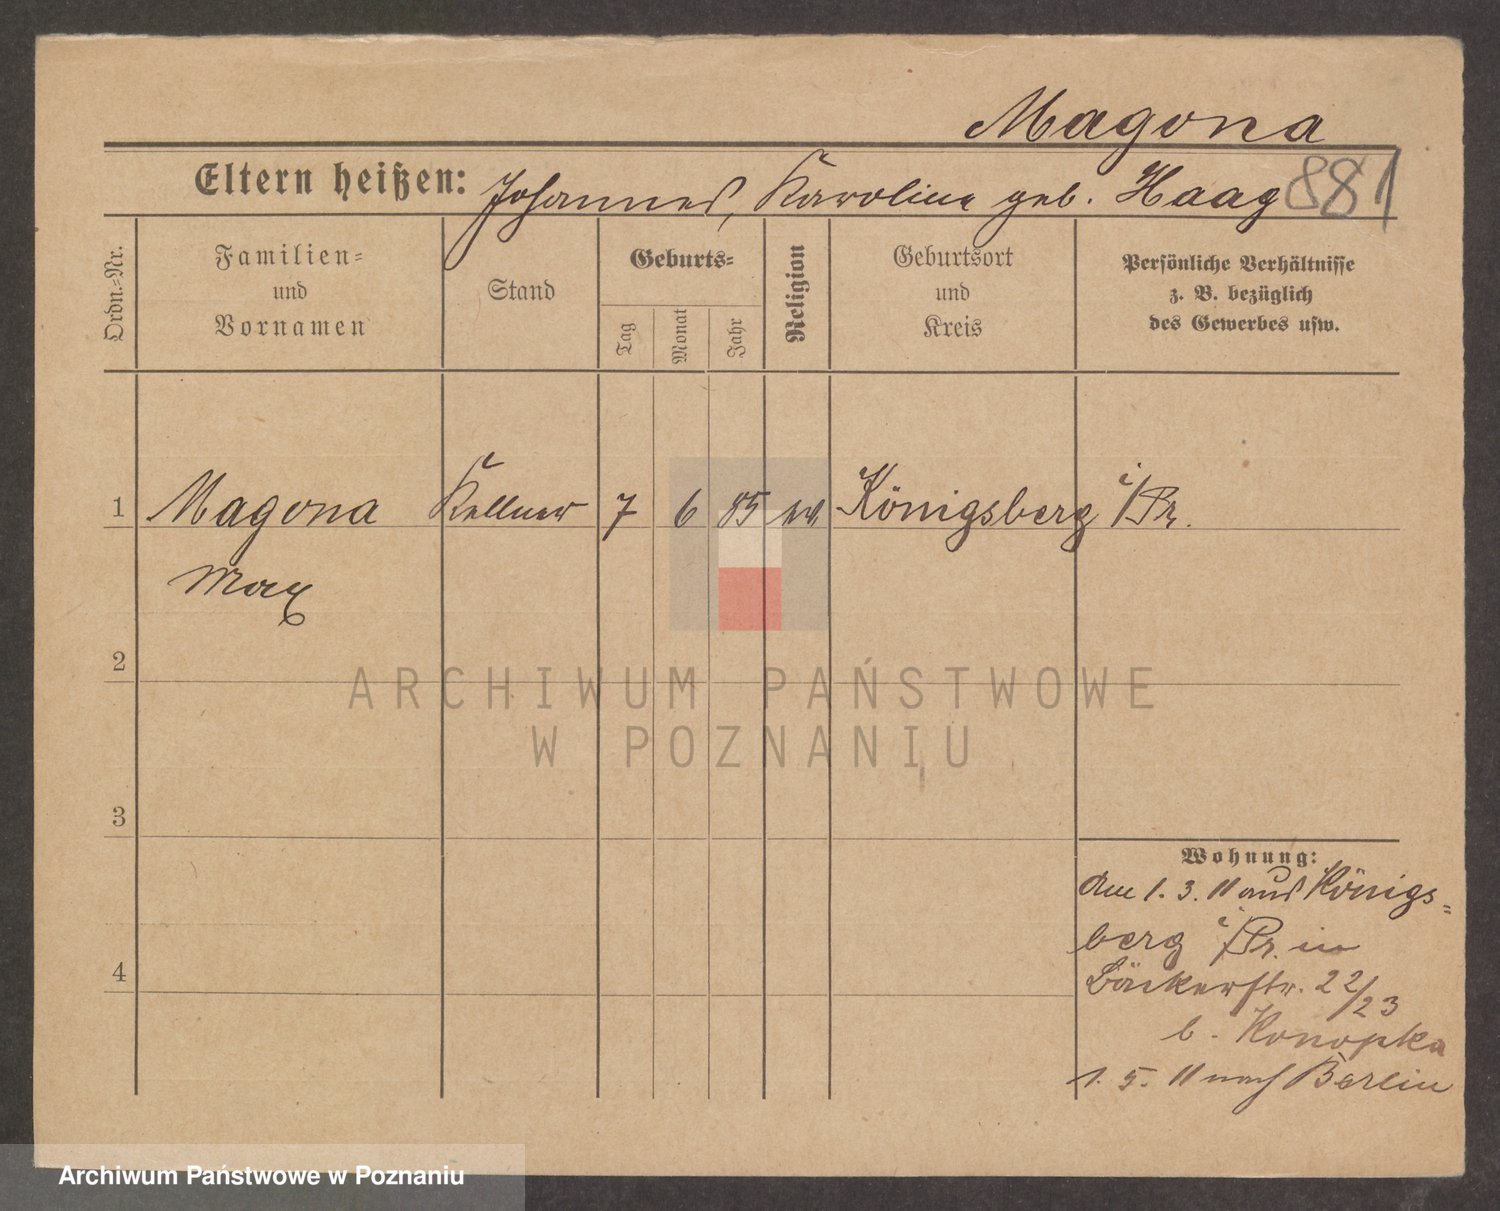 Magona
Eltern heißen: Johannes, Karoline geb. Haag 881
Ordn.-Nr.
Familien-
und
Vornamen
Stand
Geburts-
Tag
Monat
Jahr
Religion
Geburtsort
und
Kreis
Persönliche Verhältnisse
z. B. bezüglich
des Gewerbes usw.
1 Magona Kellner 7 6 85 ev Königsberg i/Pr.
Max
2
ARCHIWUM PAŃSTWOWE
W POZNANIU
3
Wohnung:
den 1. 3. 11 aus Königs=
berg i/Pr. in
4
Bäckerstr. 22/23
b. Konopka
1. 5. 11 nach Berlin
Archiwum Państwowe w Poznaniu